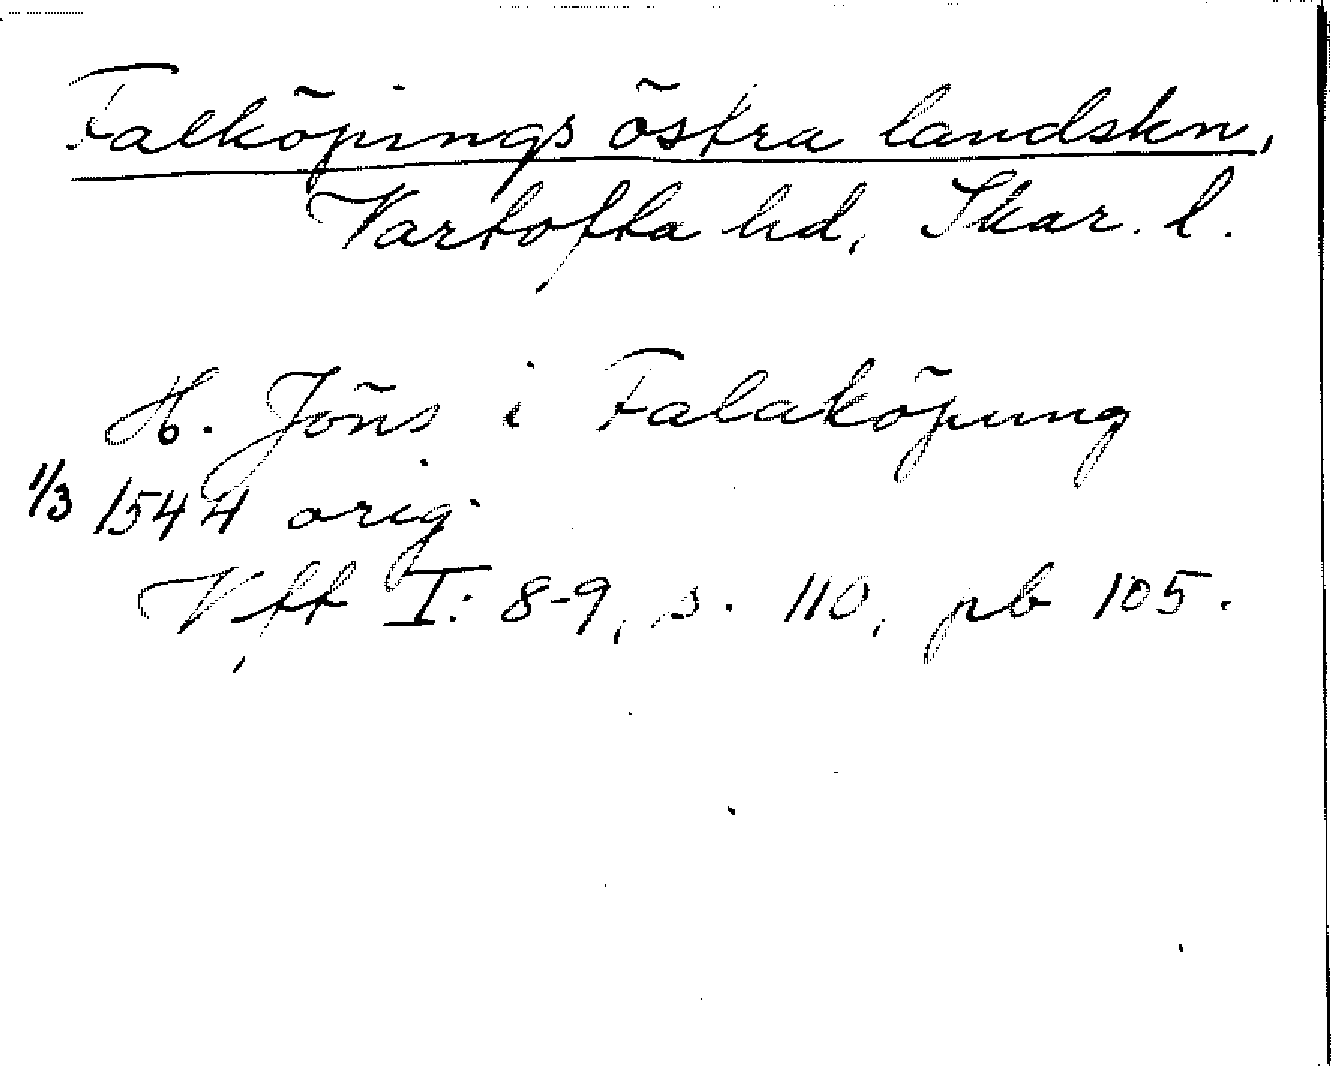 Falköpings östra landskn,
Vartofta hd, Skar. l.
H. Jöns i Falaköping
1/3 1544 orig.
Vft I: 8-9, s. 110, pb 105.